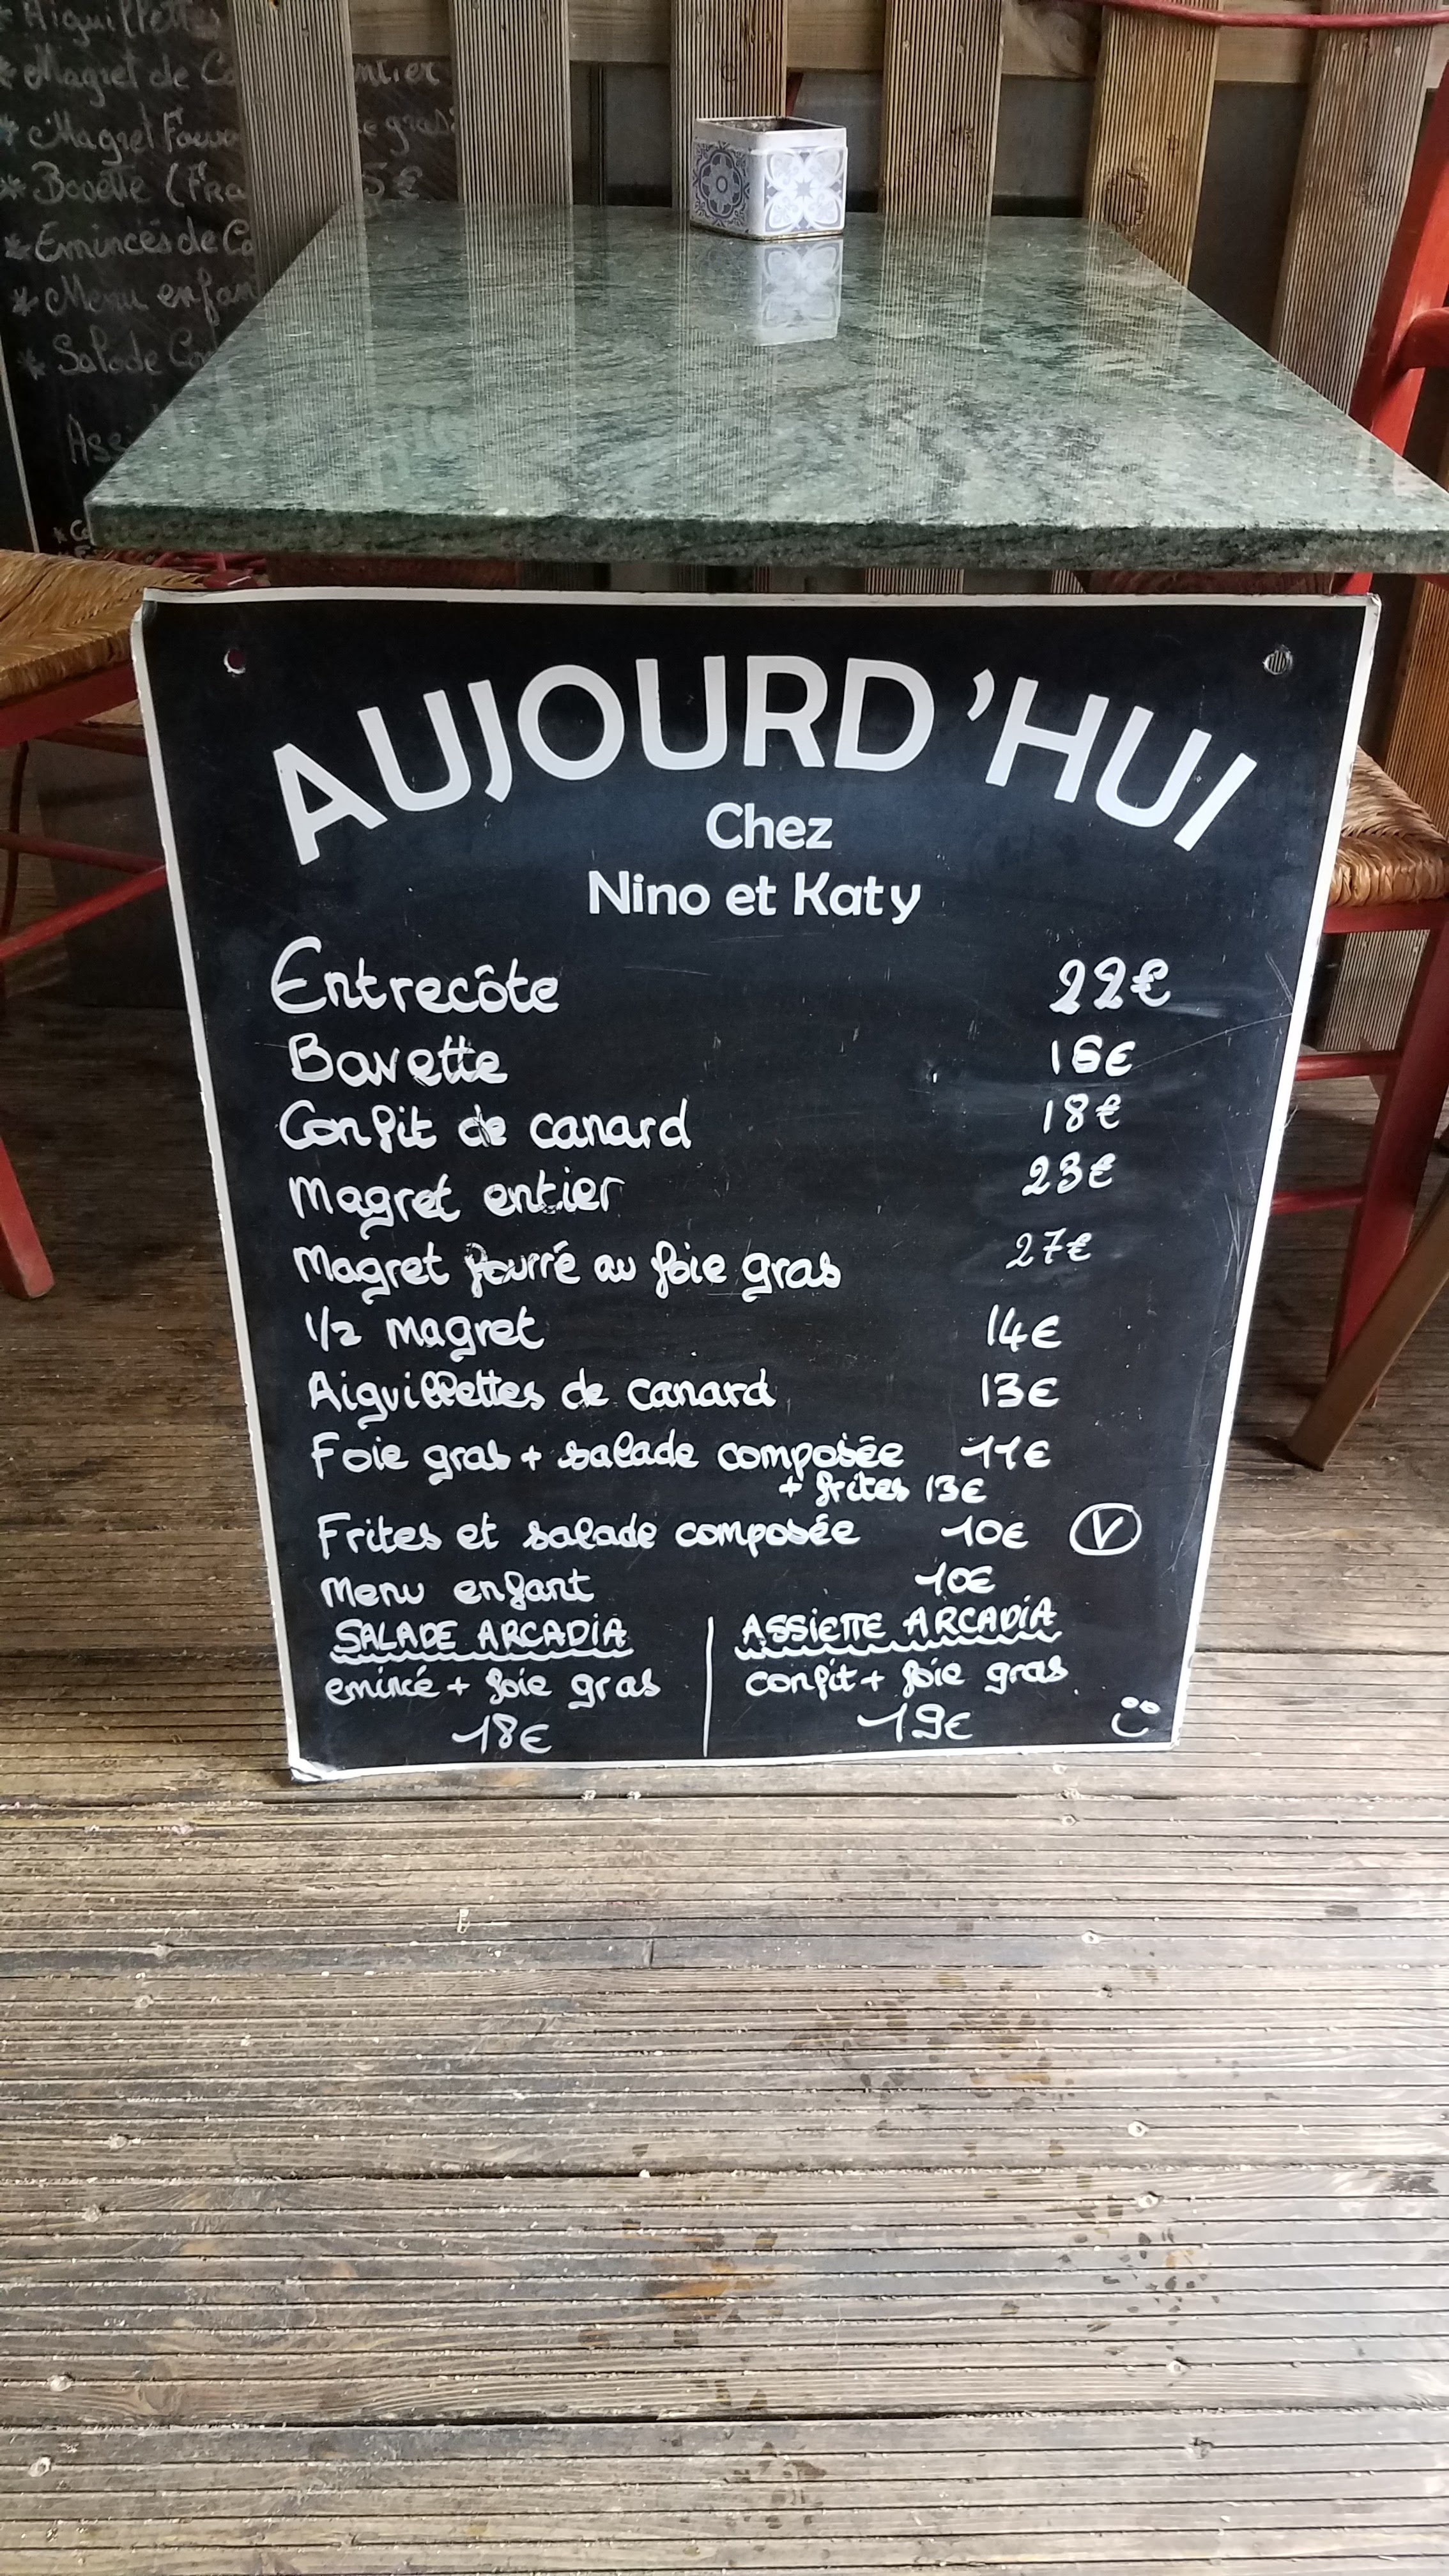 Aiguillettes
* Magret de Co ntier
* Magret Fourr e gras
* Bavette (FRA 5€
* Emincés de Co
* Menu enfan
* Salade Co
Ass
AUJOURD'HUI
Chez
Nino et Katy
Entrecôte 22€
Bavette 16€
Confit de canard 18€
Magret entier 23€
Magret fourré au foie gras 27€
1/2 magret 14€
Aiguillettes de canard 13€
Foie gras + salade composée 11€
+ frites 13€
Frites et salade composée 10€ V
Menu enfant 10€
SALADE ARCADIA
emincé + foie gras
18€
ASSIETTE ARCADIA
confit + foie gras
19€